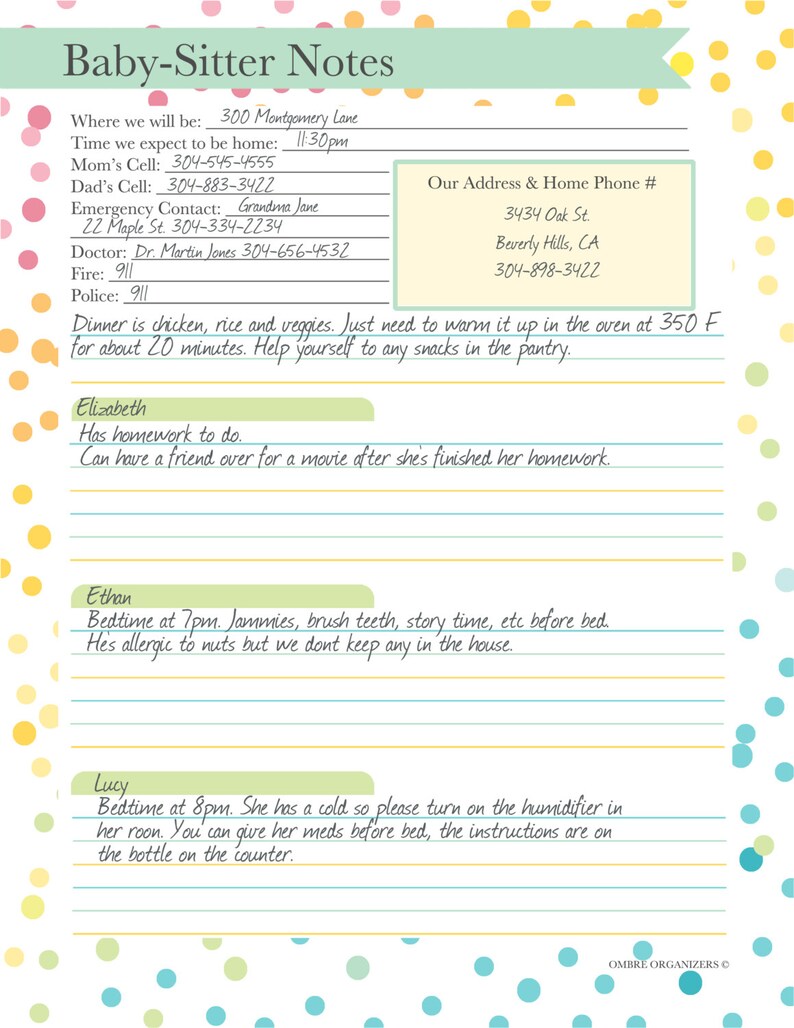 Baby-Sitter Notes
Where we will be: 300 Montgomery Lane
Time we expect to be home: 11:30pm
Mom's Cell: 304-545-4555
Dad's Cell: 304-883-3422
Emergency Contact: Grandma Jane
22 Maple St. 304-334-2234
Doctor: Dr. Martin Jones 304-656-4532
Fire: 911
Police: 911
Our Address & Home Phone #
3434 Oak St.
Beverly Hills, CA
304-898-3422
Dinner is chicken, rice and veggies. Just need to warm it up in the oven at 350 F
for about 20 minutes. Help yourself to any snacks in the pantry.
Elizabeth
Has homework to do.
Can have a friend over for a movie after she's finished her homework.
Ethan
Bedtime at 7pm. Jammies, brush teeth, story time, etc before bed.
He's allergic to nuts but we dont keep any in the house.
Lucy
Bedtime at 8pm. She has a cold so please turn on the humidifier in
her roon. You can give her meds before bed, the instructions are on
the bottle on the counter.
OMBRE ORGANIZERS ©